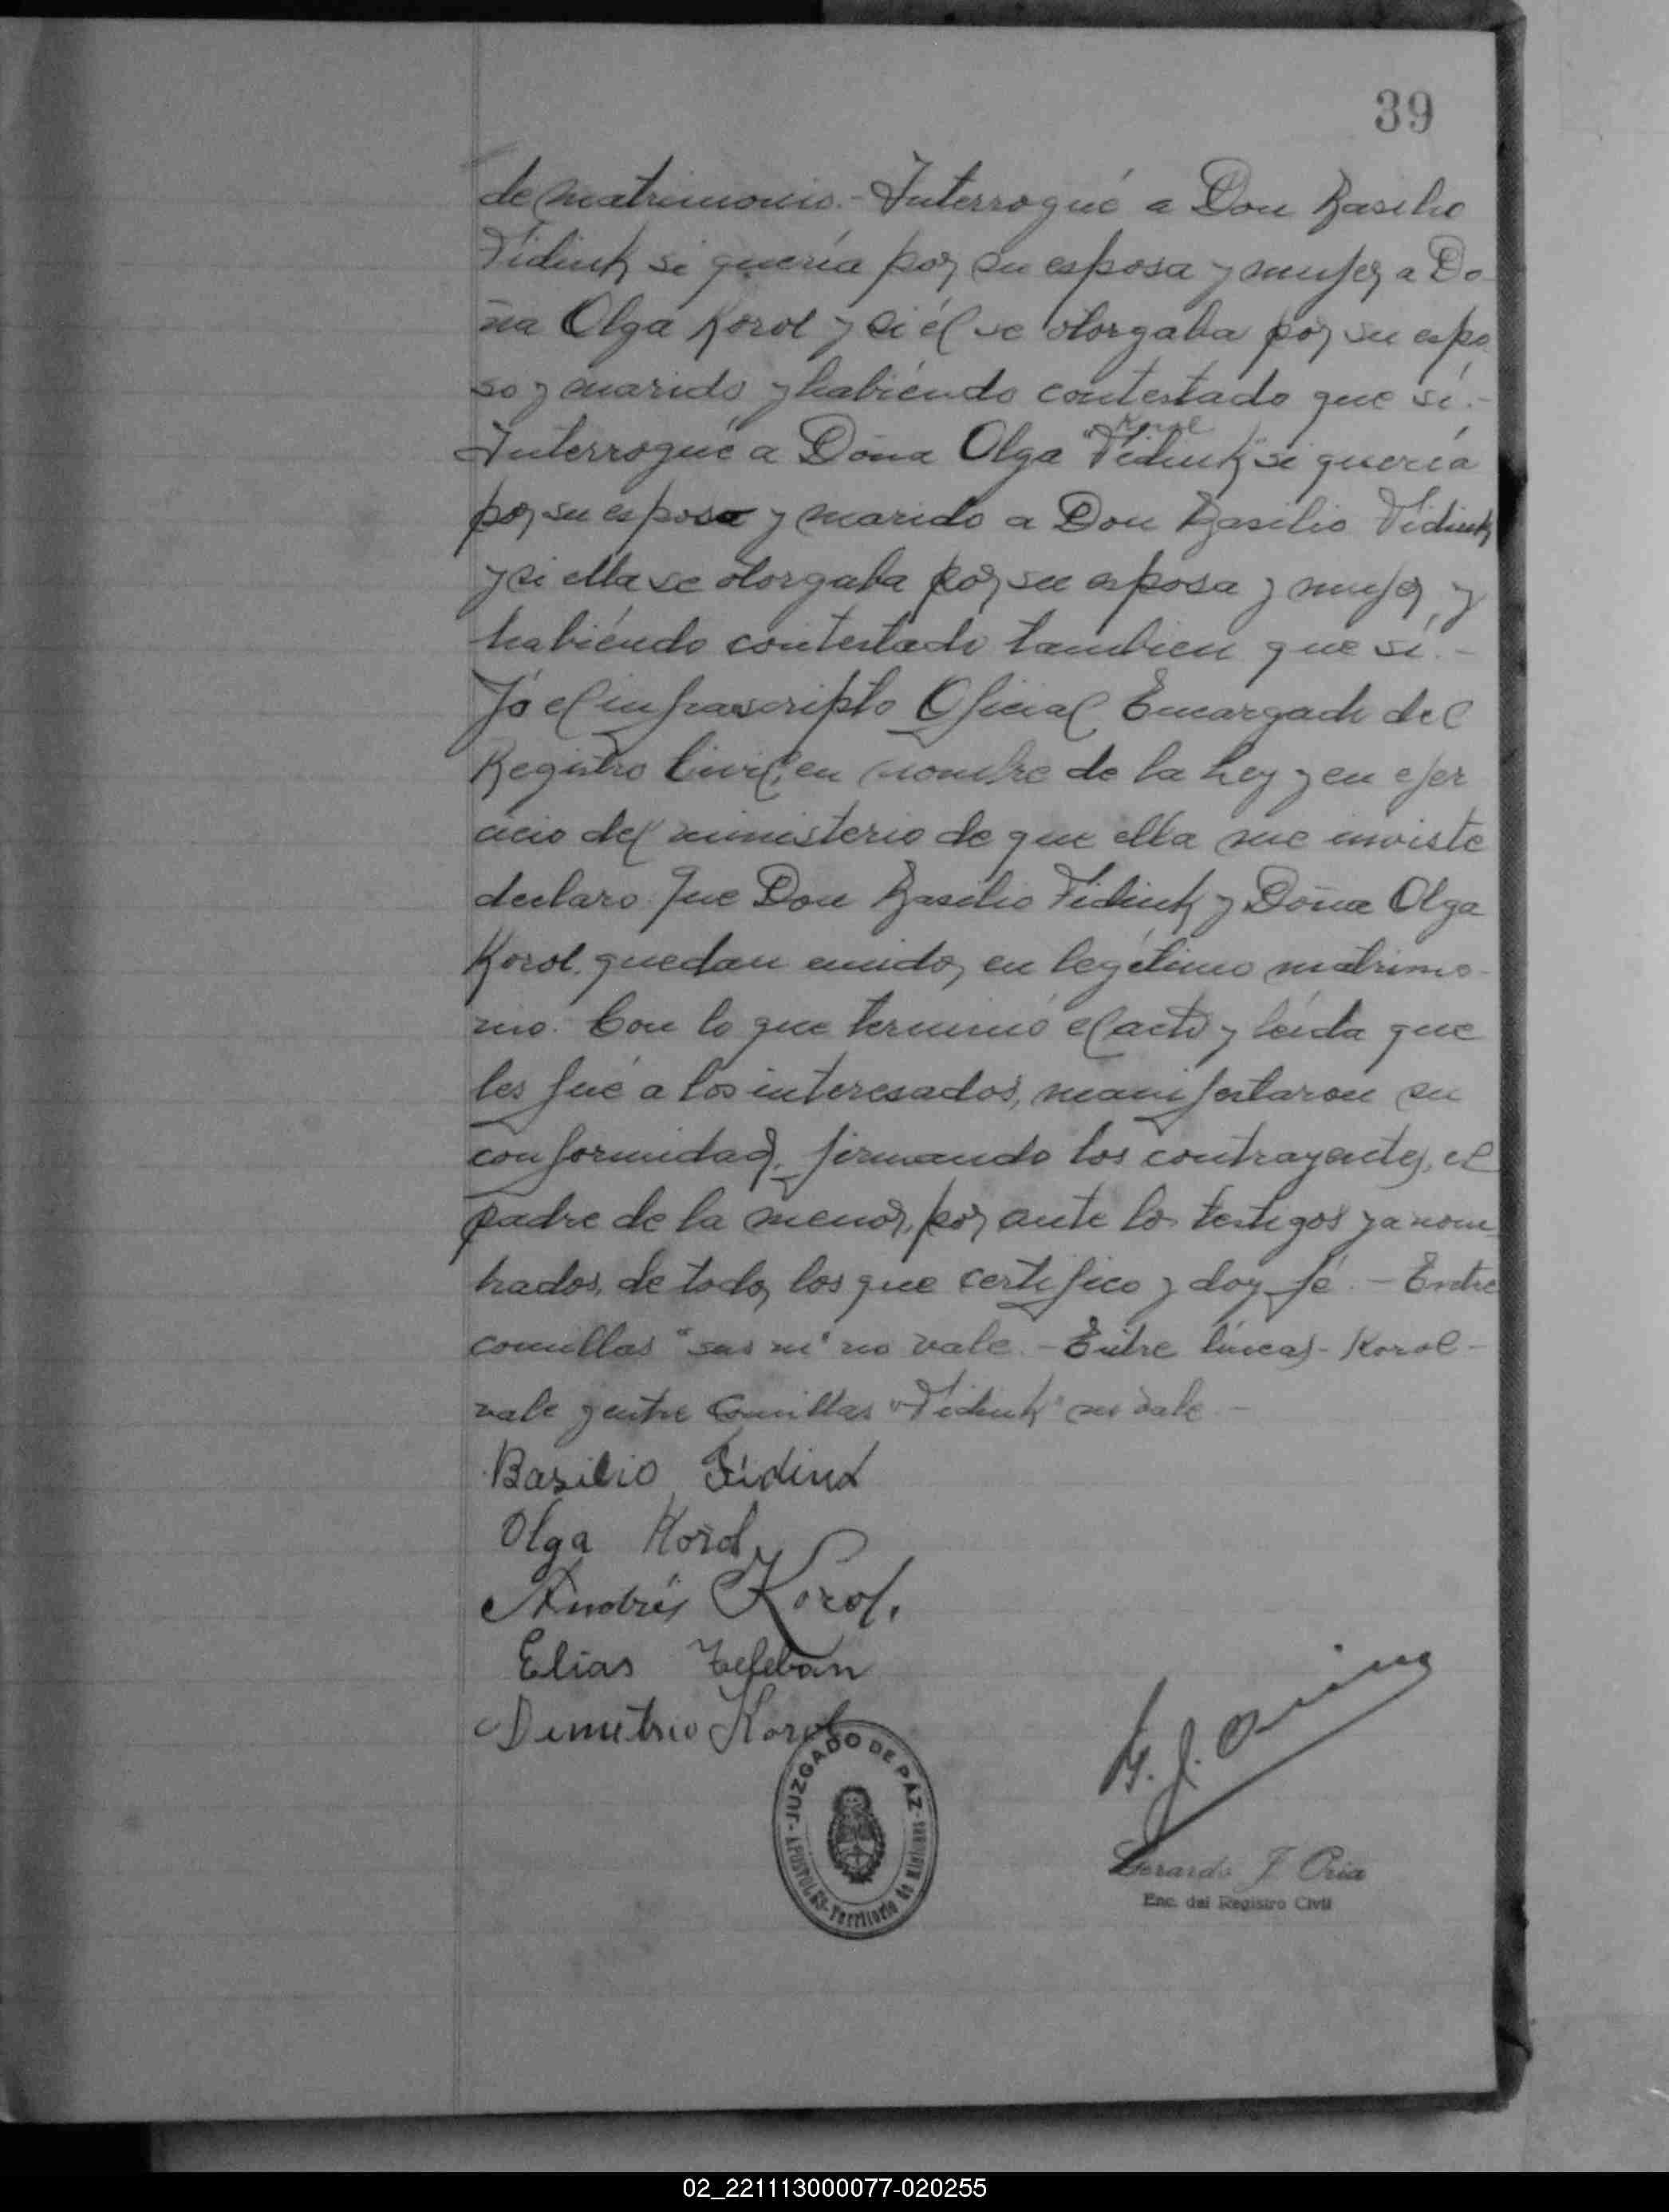 39
de matrimonio.- Interrogué a Don Basilio
Fidiuk si quería por su esposa y mujer a Do-
ña Olga Korol y si él se otorgaba por su espo
so y marido y habiéndo contestado que sí.-
Korol
Interrogué a Doña Olga "Fidiuk" si quería
por su esposo y marido a Don Basilio Fidiuk
y si ella se otorgaba por su esposa y mujer, y
habiéndo contestado tambien que sí.-
Yó el infrascripto Oficial Encargado del
Registro Civil, en nombre de la Ley y en ejer
cicio del ministerio de que ella me inviste
declaro que Don Basilio Fidiuk y Doña Olga
Korol, quedan unidos en legítimo matrimo-
nio. Con lo que terminó el acto y leída que
les fué a los interesados, manifestaron su
conformidad, firmando los contrayentes, el
padre de la menor, por ante los testigos ya nom
brados, de todos los que certifico y doy fé.- Entre
comillas " " no vale.- Entre líneas- Korol-
vale y entre comillas "Fidiuk" no vale.-
Basilio Fidiuk
Olga Korol
Andrés Korol.
Elias
Demetrio Korol
JUZGADO DE PAZ
APOSTOLES - Territorio de Misiones
Gerardo J. Oria
Enc. del Registro Civil
02_221113000077-020255